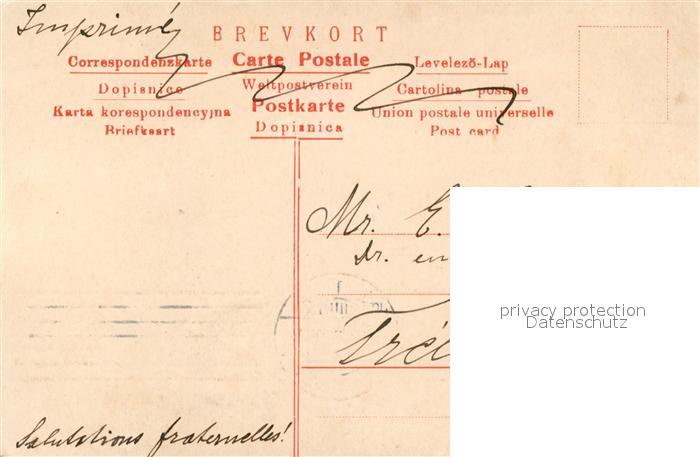 Imprimé
BREVKORT
Correspondenzkarte Carte Postale Levelező-Lap
Dopisnice Weltpostverein Cartolina postale
Karta korespondencyjna Postkarte Union postale universelle
Briefkaart Dopisnica Post card
Mr. E.
Dr. en
privacy protection
Datenschutz
Salutations fraternelles!